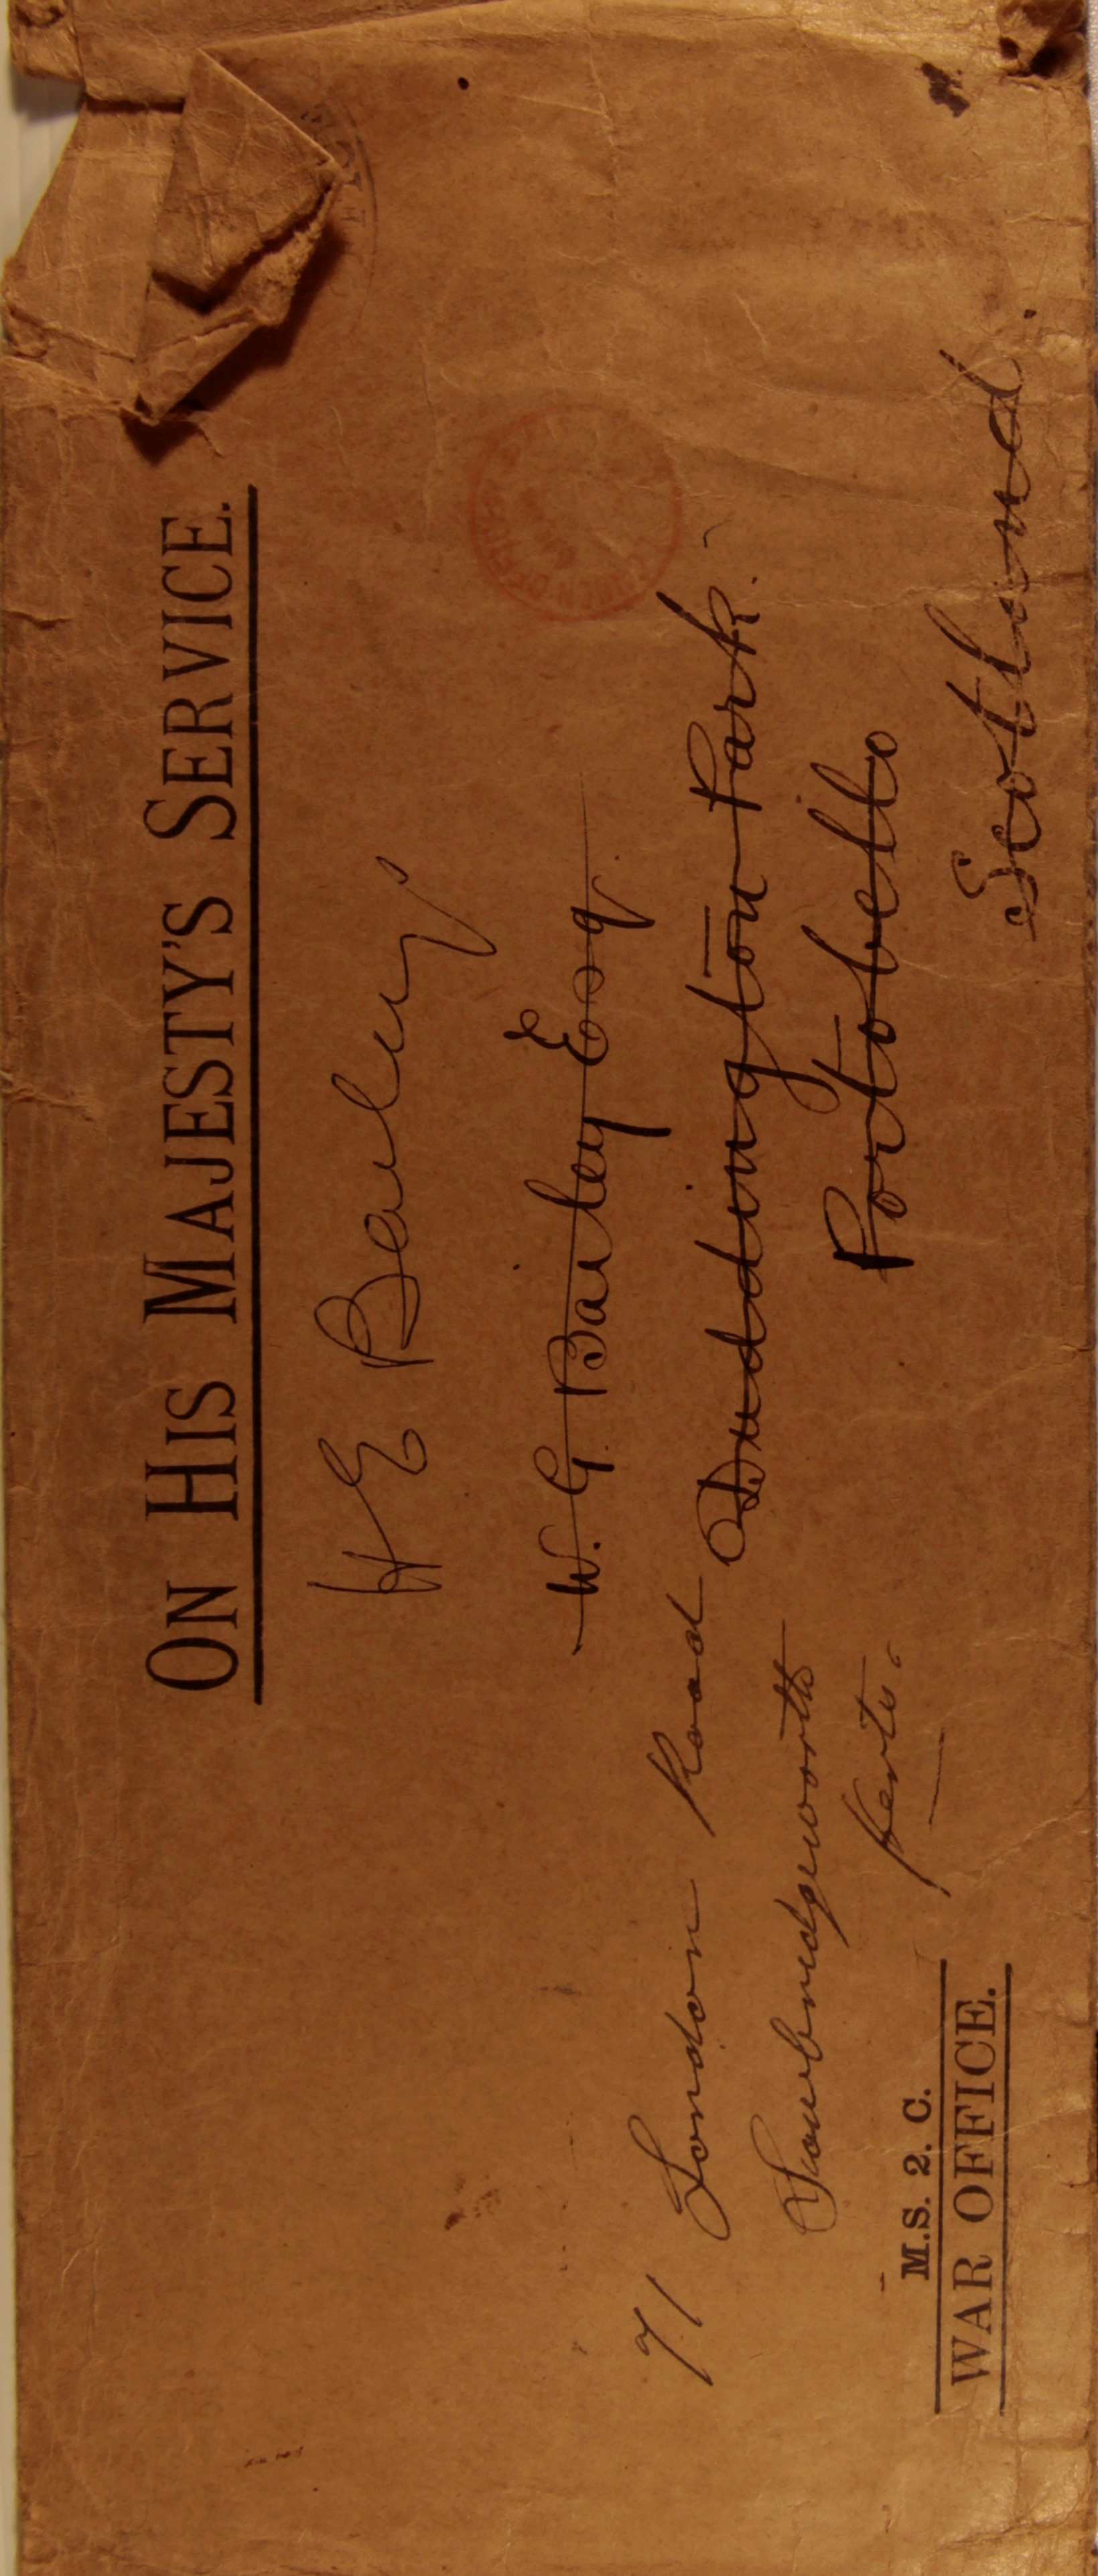 ON HIS MAJESTY'S SERVICE.
H E Bailey
W. G. Bailey Esq.
Duddingston Park.
Portobello
Scotland.
71 London Road
Sawbridgeworth
Herts.
M.S. 2. C.
WAR OFFICE.